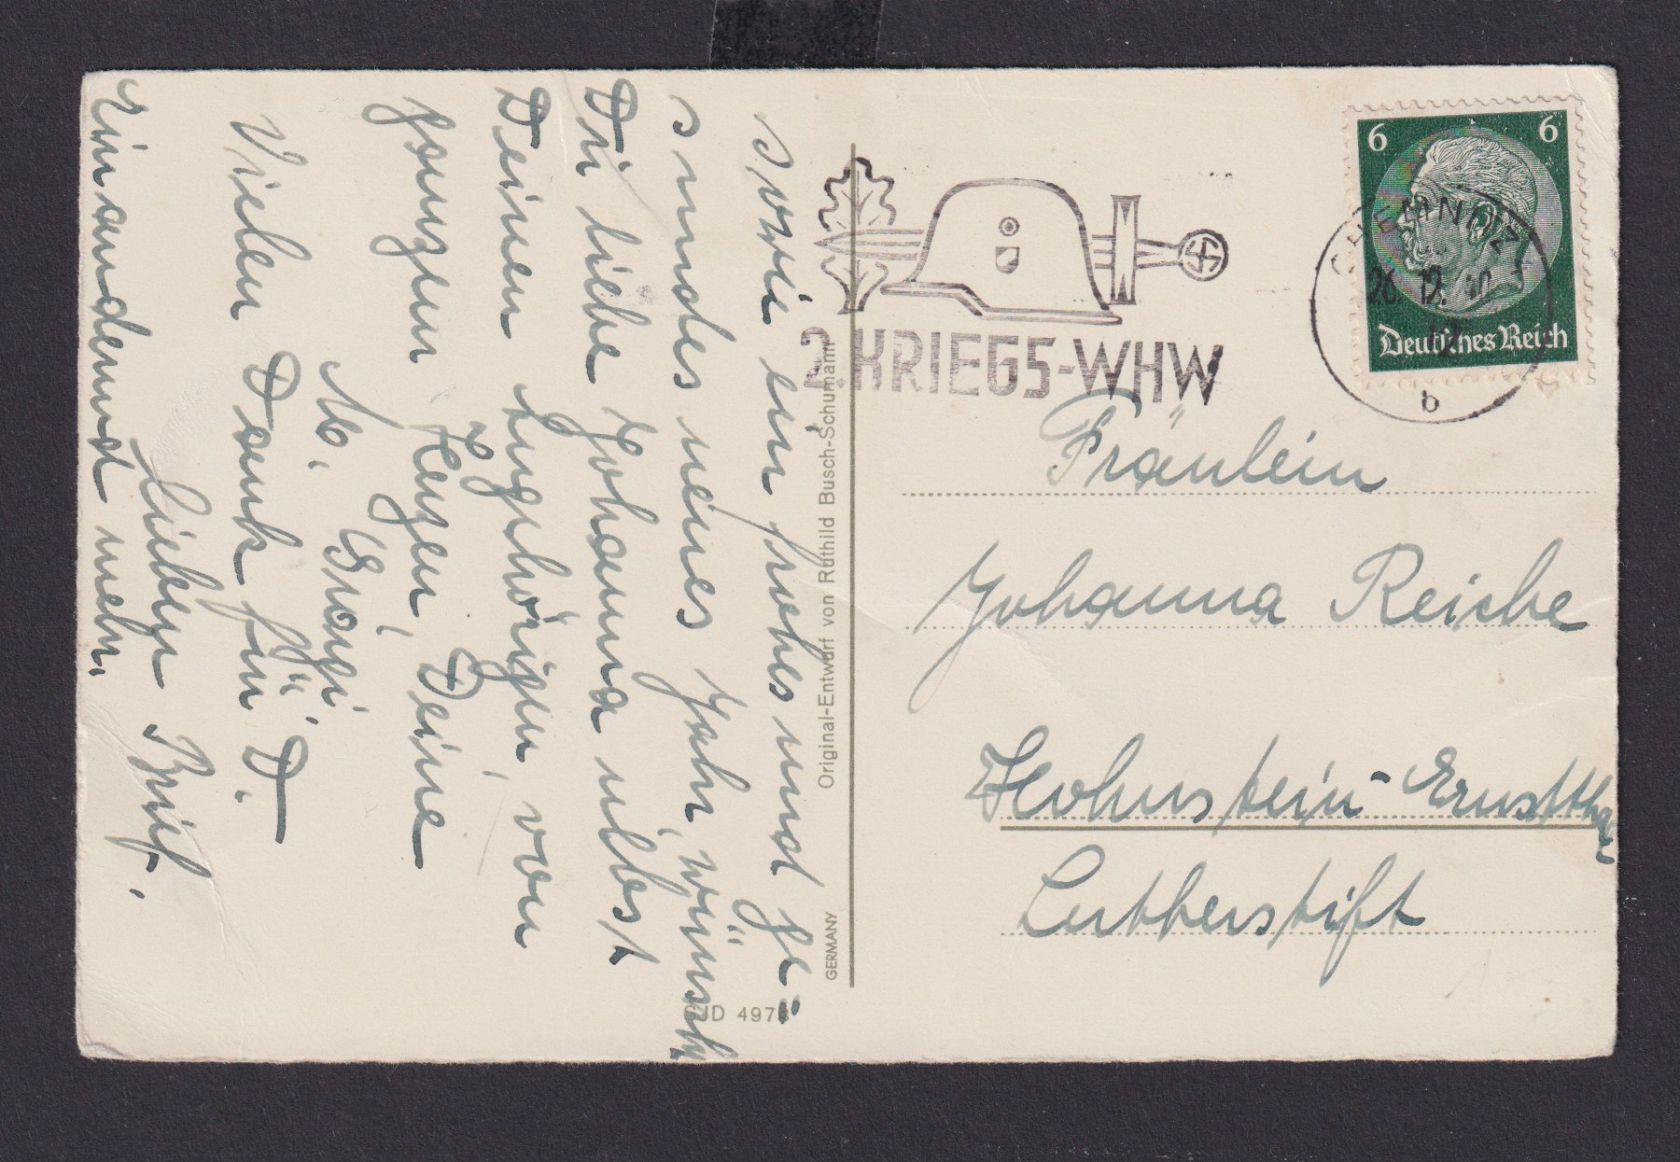 Sowie ein frohes und ge-
sundes neues Jahr, wünscht
Dir liebe Johanna nebst
Deinen Angehörigen, von
ganzem Herzen, Deine
M.
Vielen Dank für D.
lieben Brief.
Original-Entwurf von Ruthild Busch-Schumann
GERMANY
2. KRIEGS-WHW
6 6
Deutsches Reich
CHEMNITZ
26.12.40
b
Fräulein
Johanna Reiche
Hohenstein-Ernstthal
Lutherstift